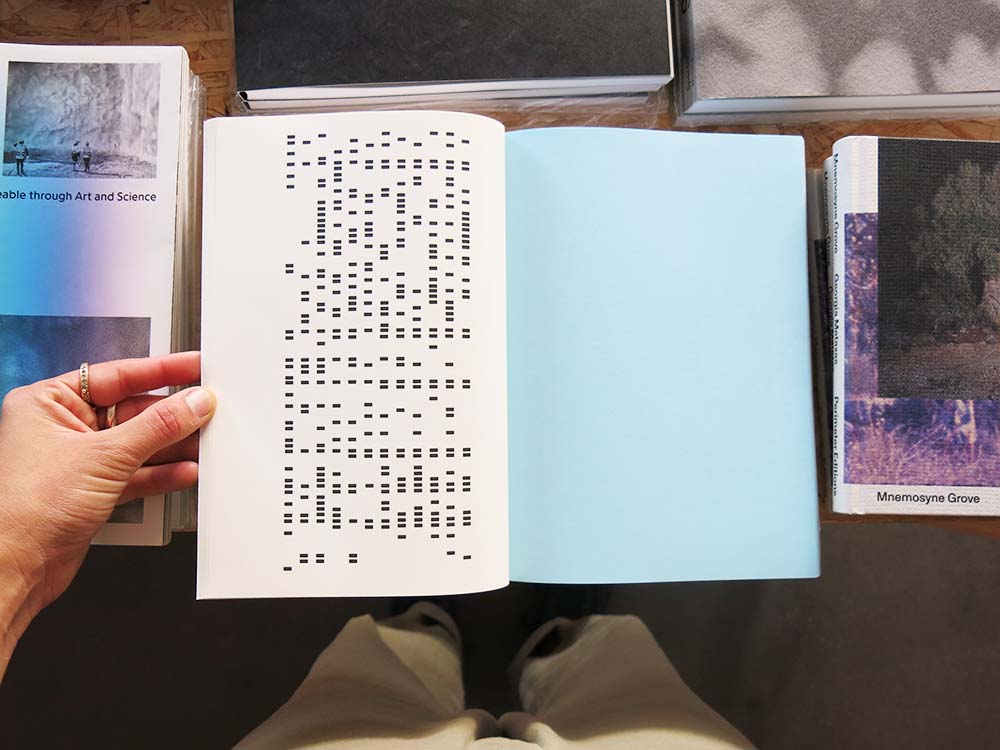 eable through Art and Science
Mnemosyne Grove
Georgia Metaxas
Perimeter Editions
Mnemosyne Grove